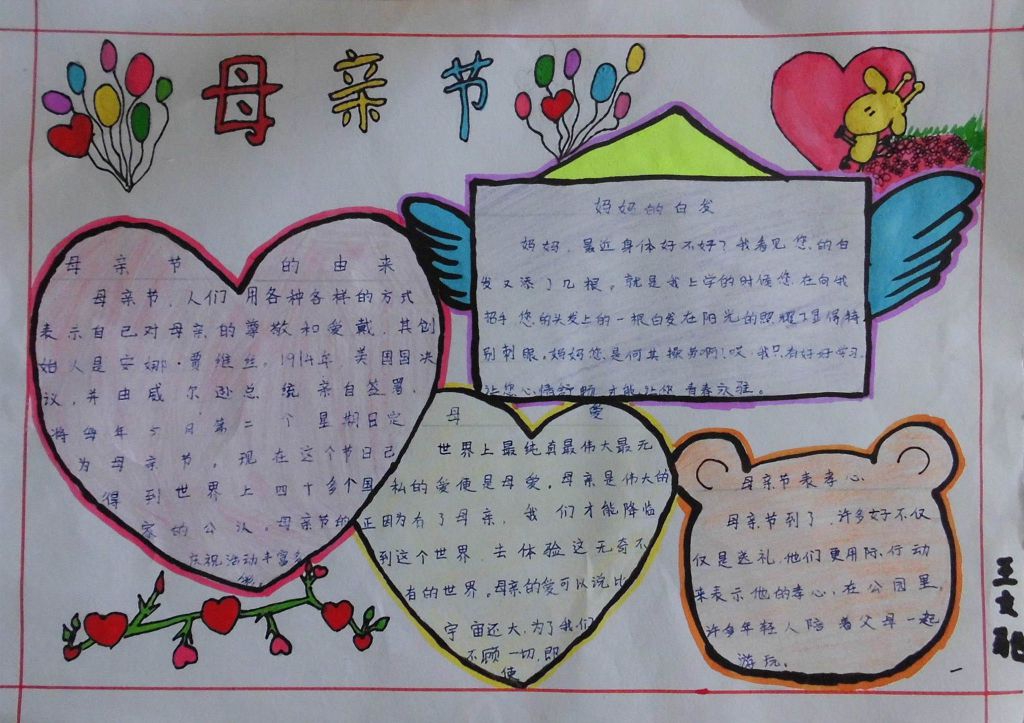 母亲节
母亲节的由来
母亲节，人们用各种各样的方式
表示自己对母亲的尊敬和爱戴，其创
始人是安娜·贾维丝，1914年，美国国决
议，并由威尔逊总统亲自签署，
将每年5月第二个星期日定
为母亲节。现在这个节日已
得到世界上四十多个国
家的公认。母亲节的
庆祝活动丰富多
彩。
妈妈的白发
妈妈，最近身体好不好？我看见您的白
发又添了几根。就是我上学的时候您在向我
招手，您的头发上的一根白发在阳光的照耀下显得特
别刺眼。妈妈您是何其操劳啊！唉，我只有好好学习，
让您心情舒畅，才能让你青春永驻。
母爱
世界上最纯真最伟大最无
私的爱便是母爱。母亲是伟大的
正因为有了母亲，我们才能降临
到这个世界，去体验这无奇不
有的世界。母亲的爱可以说比
宇宙还大，为了我们
不顾一切，即
使
母亲节表孝心
母亲节到了，许多好不仅
仅是送礼，他们更用际行动
来表示他的孝心，在公园里，
许多年轻人陪着父母一起
游玩。
王文驰